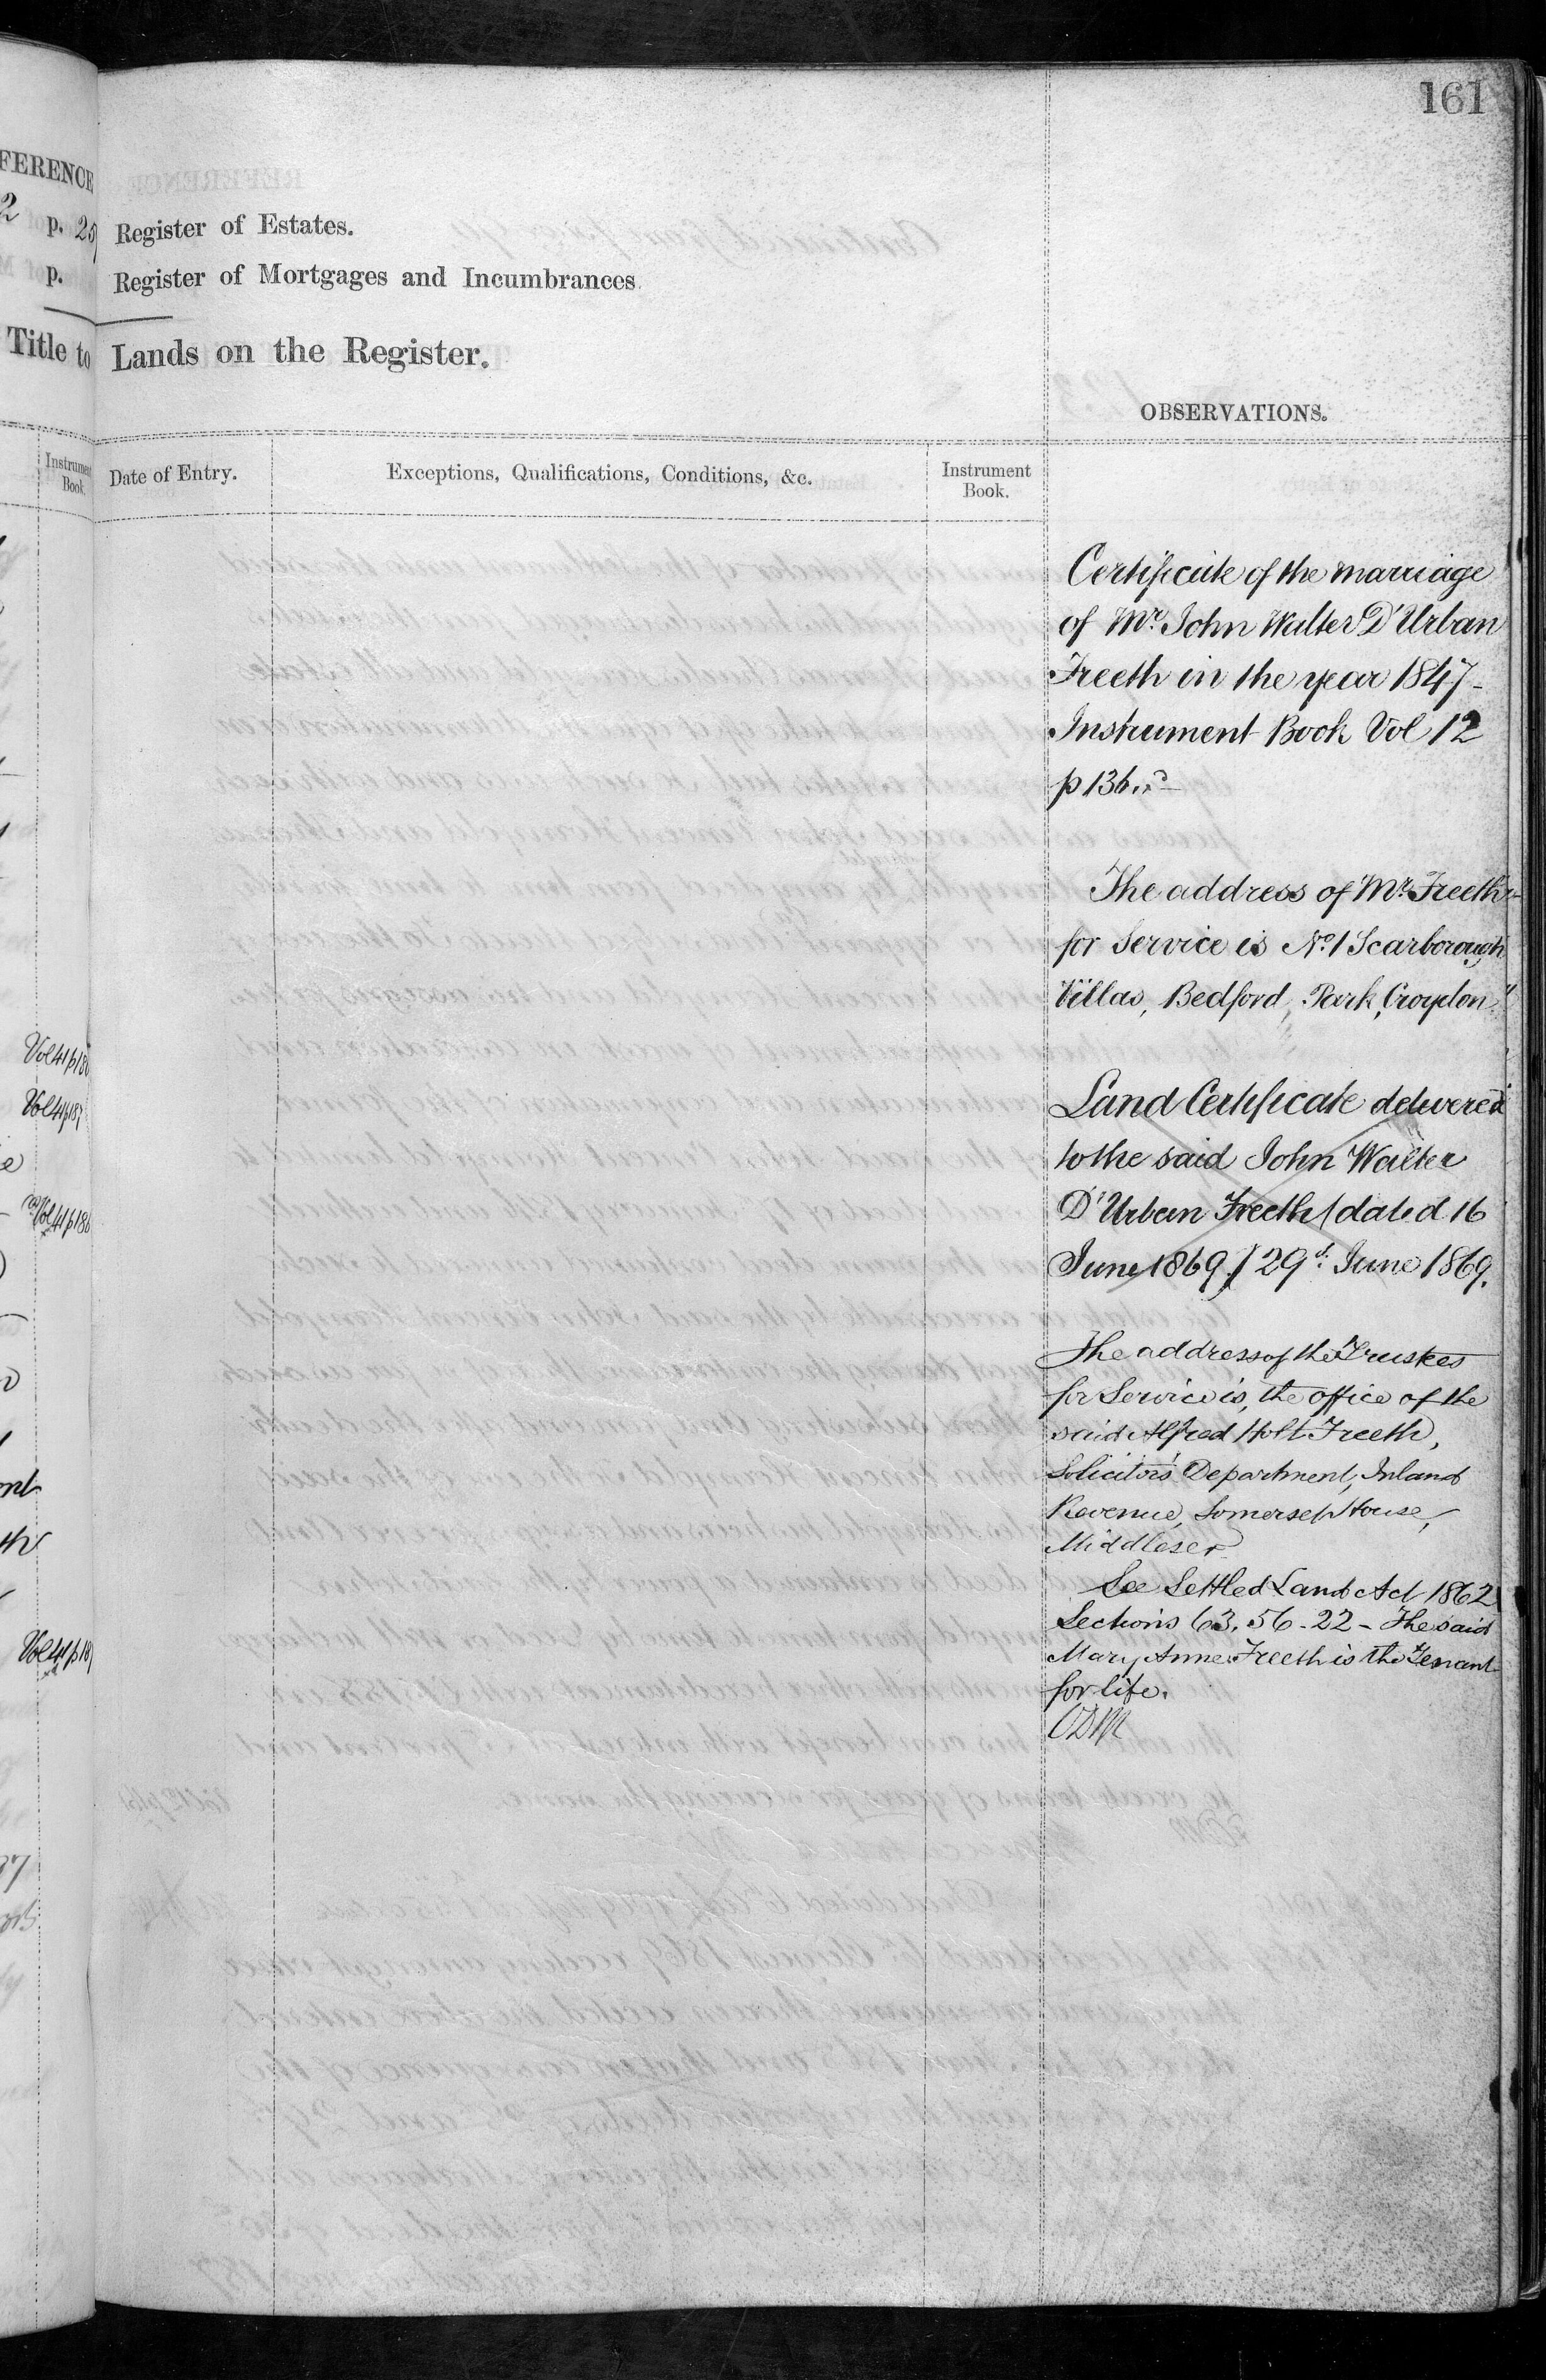 161
FERENCE
2 p. 25
p.
Title to
Instrument
Book.
Vol 41 p 186
Vol 41 p 187
Vol 41 p 186
Vol 41 p 18
Register of Estates.
Register of Mortgages and Incumbrances
Lands on the Register.
OBSERVATIONS.
Date of Entry.
Exceptions, Qualifications, Conditions, &c.
Instrument
Book.
Certificate of the marriage
of Mr. John Walter D'Urban
Freeth in the year 1847-
Instrument Book Vol 12
p 136.
The address of Mr. Freeth
for Service is No. 1 Scarborough
Villas, Bedford, Park, Croydon
Land Certificate delivered
to the said John Walter
D'Urban Freeth (dated 16
June 1869) 29th June 1869.
The address of the Trustees
for Service is, the office of the
said Alfred Holt Freeth,
Solicitors Department, Inland
Revenue, Somerset House,
Middlesex
See Settled Land Act 1862
Sections 63. 56 - 22 - The said
Mary Anne Freeth is the Tenant
for life.